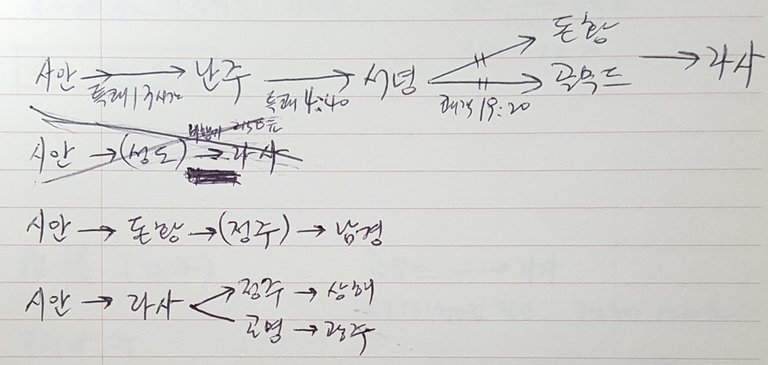 돈황
시안 → 난주 → 서녕 → 골무드 → 라사
특쾌 13시간 특쾌 4:40 쾌속 19:20
비행기 2150元
시안 → (성도) → 라사
시안 → 돈황 → (정주) → 남경
정주 → 상해
시안 → 라사
곤명 → 광주